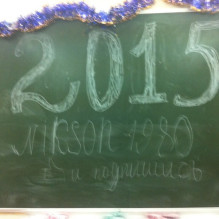 2015
NIKSON 1980
и подпишись